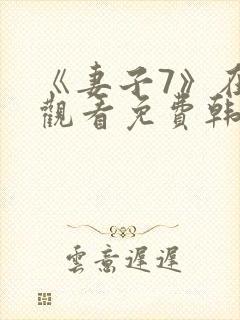 《妻子7》在
觀看免費韓
雲意遲遲